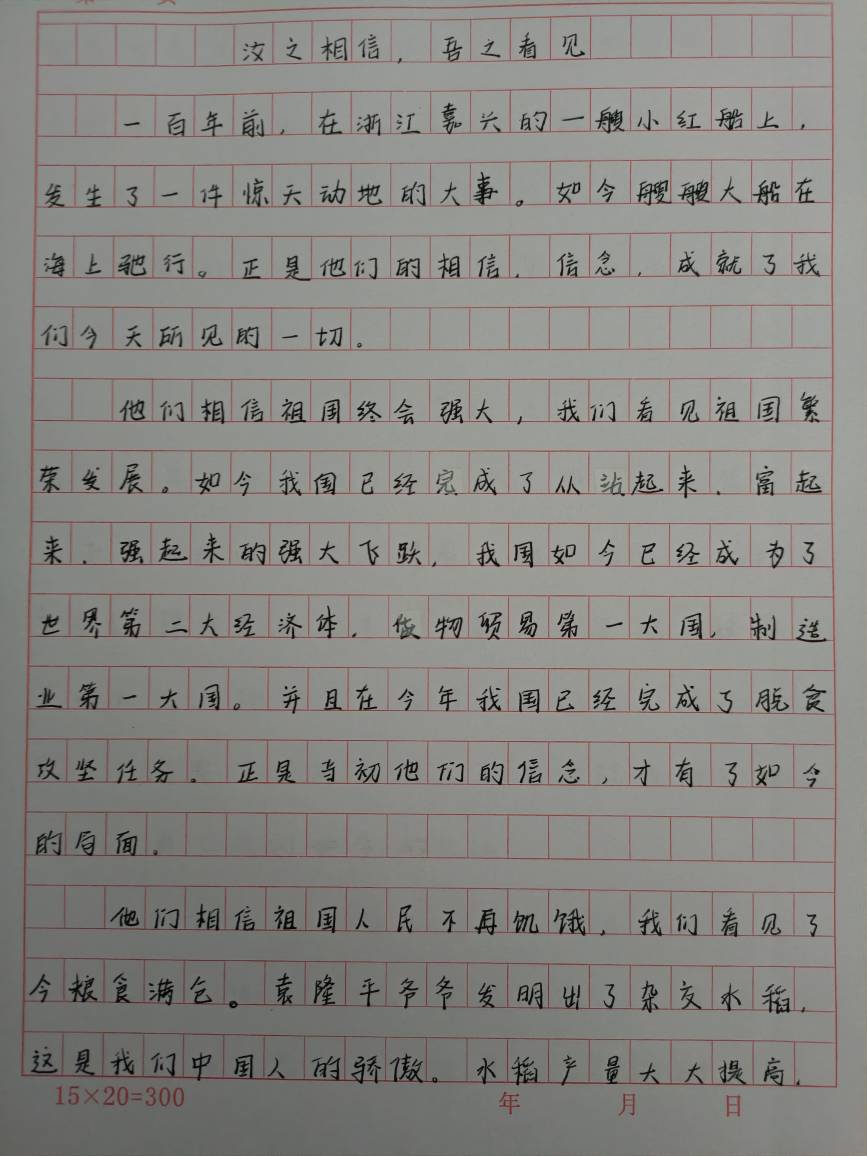 汝之相信，吾之看见
一百年前，在浙江嘉兴的一艘小红船上，
发生了一件惊天动地的大事。如今艘艘大船在
海上驰行。正是他们的相信，信念，成就了我
们今天所见的一切。
他们相信祖国终会强大，我们看见祖国繁
荣发展。如今我国已经完成了从站起来、富起
来、强起来的强大飞跃，我国如今已经成为了
世界第二大经济体，货物贸易第一大国，制造
业第一大国。并且在今年我国已经完成了脱食
攻坚任务。正是当初他们的信念，才有了如今
的局面。
他们相信祖国人民不再饥饿，我们看见了
今粮食满仓。袁隆平爷爷发明出了杂交水稻，
这是我们中国人的骄傲。水稻产量大大提高，
15×20=300
年 月 日